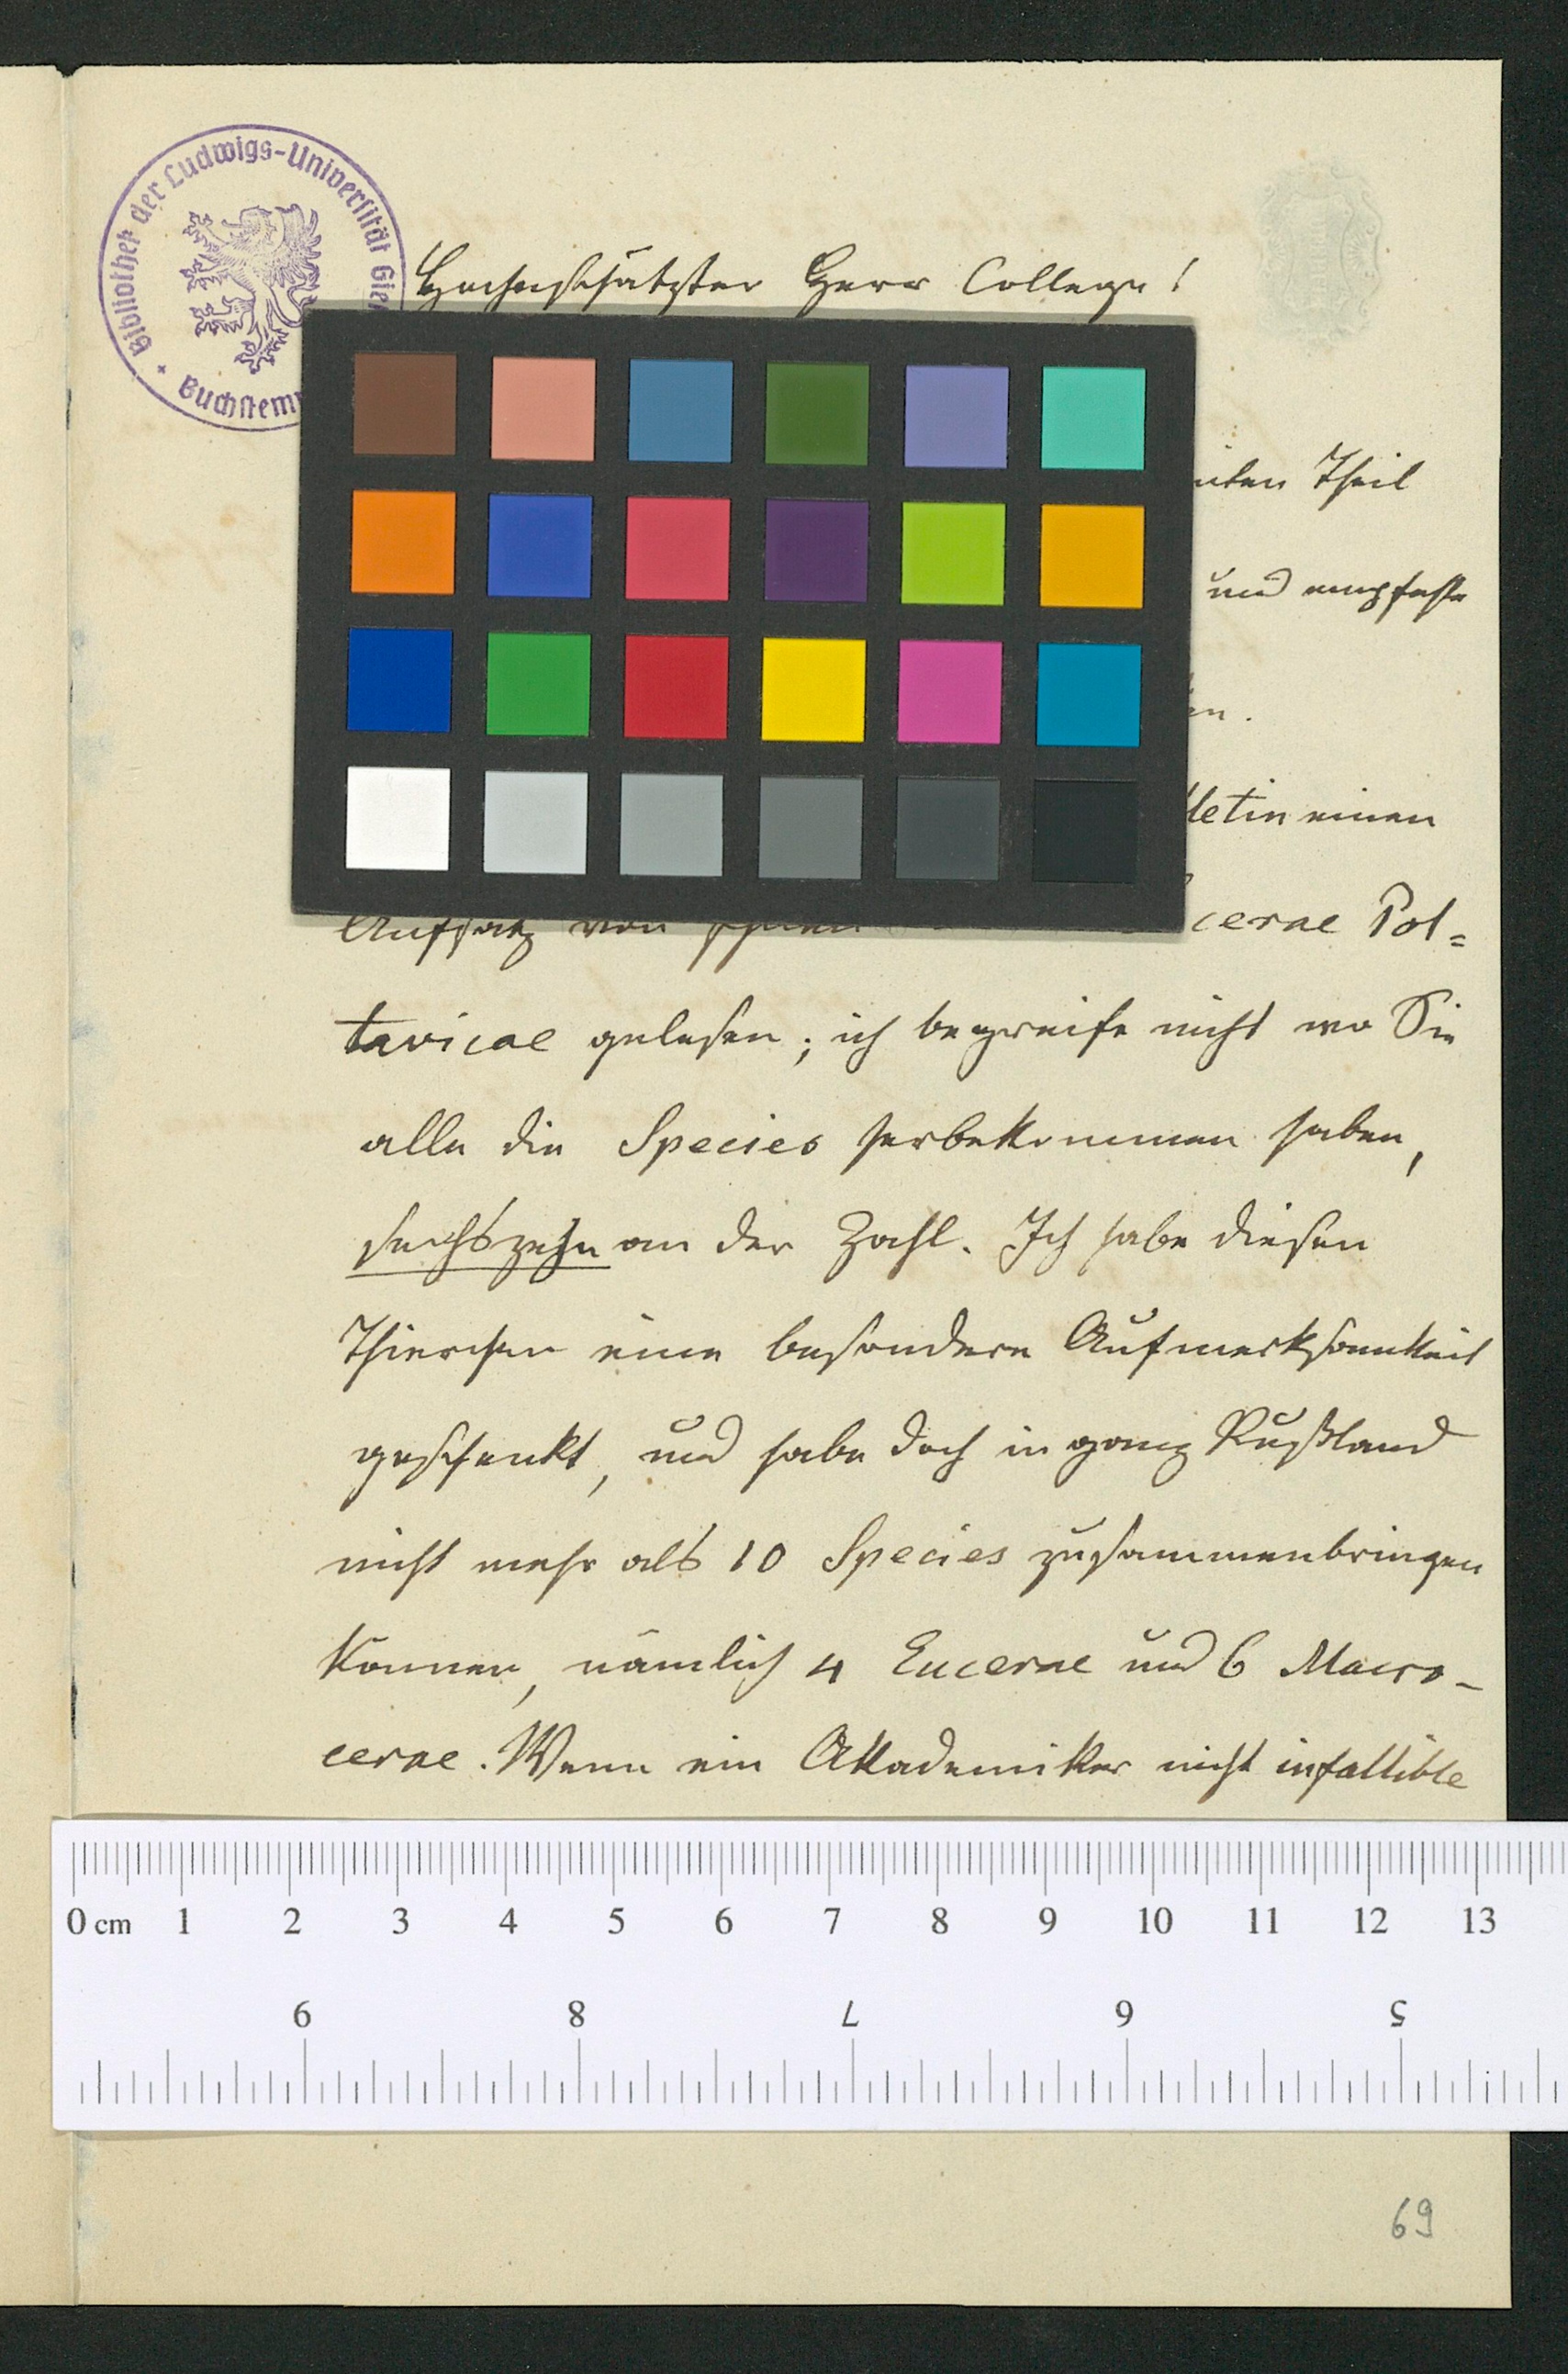 Bibliothek der Ludwigs-Universität Gie
Buchstem
Hochgeschätzter Herr College!
ten Theil
und empfehle
en.
lletin einen
Aufsatz von Ihnen
cerae Pol=
tavicae gelesen; ich begreife nicht wo Sie
alle die Species herbekommen haben,
sechszehn an der Zahl. Ich habe diesen
Thierchen eine besondere Aufmerksamkeit
geschenkt, und habe doch in ganz Rußland
nicht mehr als 10 Species zusammenbringen
können, nämlich 4 Eucerae und 6 Macro-
cerae. Wenn ein Akademiker nicht infallible
0 cm 1 2 3 4 5 6 7 8 9 10 11 12 13
9 8 7 6 5
69